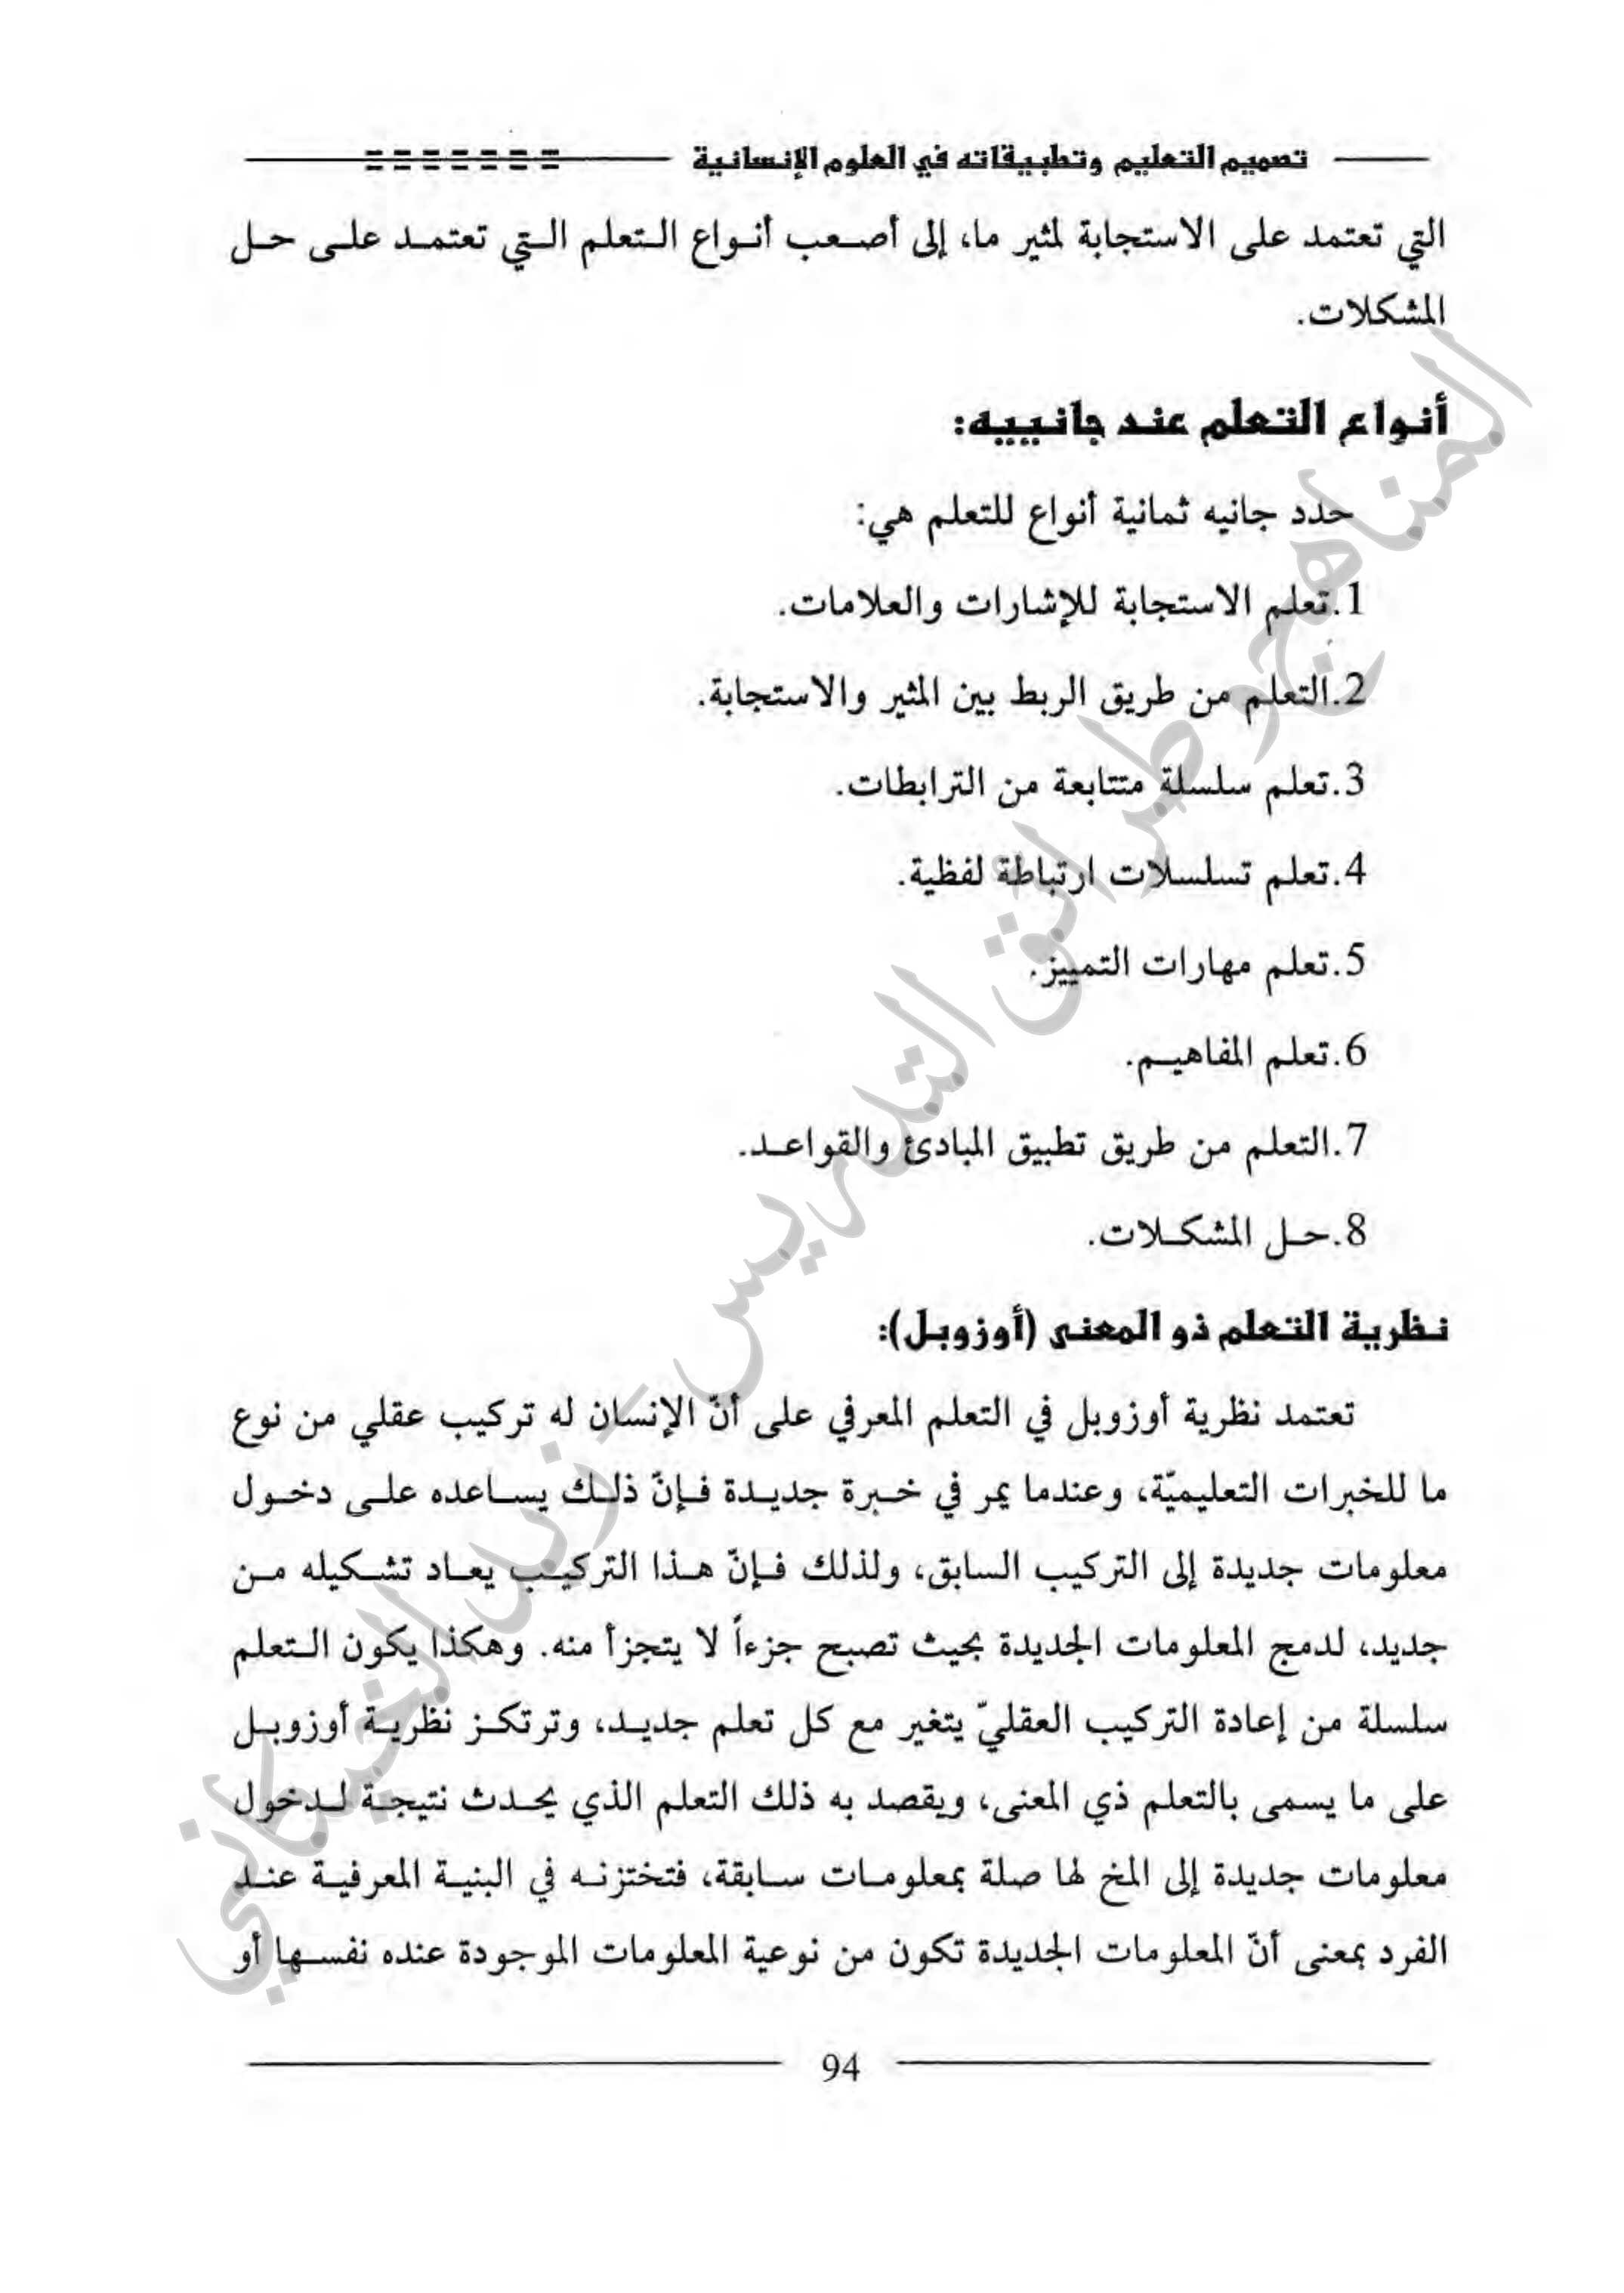 تصميم التعليم وتطبيقاته في العلوم الإنسانية
التي تعتمد على الاستجابة لمثير ما، إلى أصعب أنواع التعلم التي تعتمد على حل
المشكلات.
أنواع التعلم عند جانييه:
حدد جانيه ثمانية أنواع للتعلم هي:
1.تعلم الاستجابة للإشارات والعلامات.
2.التعلم من طريق الربط بين المثير والاستجابة.
3.تعلم سلسلة متتابعة من الترابطات.
4.تعلم تسلسلات ارتباطة لفظية.
5.تعلم مهارات التمييز.
6.تعلم المفاهيم.
7.التعلم من طريق تطبيق المبادئ والقواعد.
8.حل المشكلات.
نظرية التعلم ذو المعنى (أوزوبل):
تعتمد نظرية أوزوبل في التعلم المعرفي على أنّ الإنسان له تركيب عقلي من نوع
ما للخبرات التعليميّة، وعندما يمر في خبرة جديدة فإنّ ذلك يساعده على دخول
معلومات جديدة إلى التركيب السابق، ولذلك فإنّ هذا التركيب يعاد تشكيله من
جديد، لدمج المعلومات الجديدة بحيث تصبح جزءاً لا يتجزأ منه. وهكذا يكون التعلم
سلسلة من إعادة التركيب العقليّ يتغير مع كل تعلم جديد، وترتكز نظرية أوزوبل
على ما يسمى بالتعلم ذي المعنى، ويقصد به ذلك التعلم الذي يحدث نتيجة لدخول
معلومات جديدة إلى المخ لها صلة بمعلومات سابقة، فتختزنه في البنية المعرفية عند
الفرد بمعنى أنّ المعلومات الجديدة تكون من نوعية المعلومات الموجودة عنده نفسها أو
94
المناهج وطرائق التدريس - زيد الخيكاني